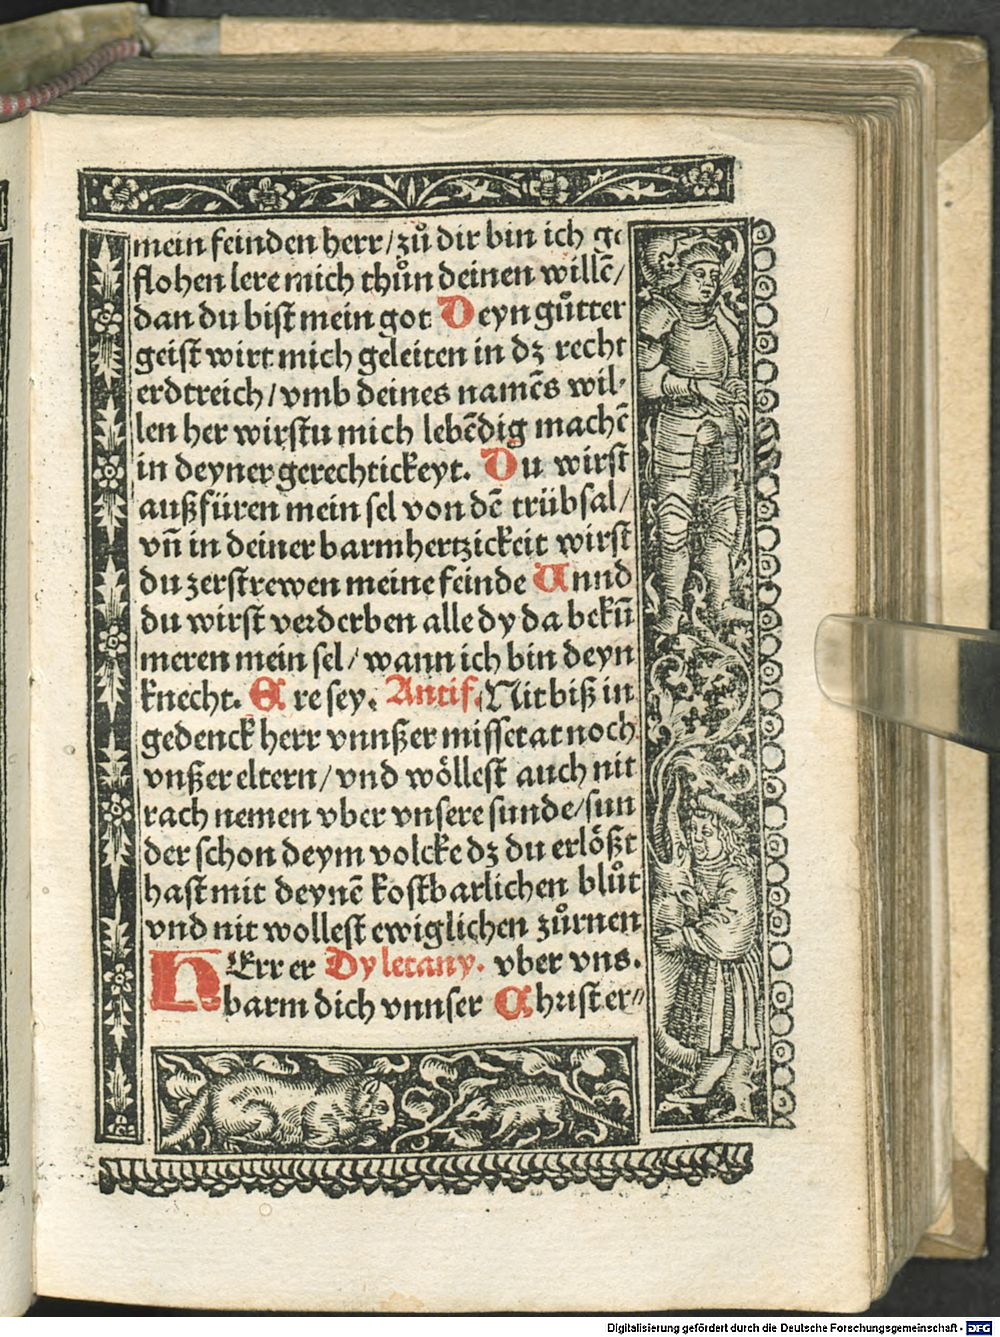 mein feinden herr/zů dir bin ich ge
flohen lere mich thůn deinen willē/
dan du bist mein got Deyn gůtter
geist wirt mich geleiten in dz recht
erdtreich/vmb deines namēs wil-
len her wirstu mich lebēdig machē
in deyner gerechtickeyt. Du wirst
außfüren mein sel von dē trübsal/
vñ in deiner barmhertzickeit wirst
du zerstrewen meine feinde Unnd
du wirst verderben alle dy da bekū
meren mein sel/wann ich bin deyn
knecht. Ere sey. Antif. Nit biß in
gedenck herr vnnßer missetat noch
vnßer eltern/vnd wöllest auch nit
rach nemen vber vnsere sunde/sun
der schon deym volcke dz du erlößt
hast mit deynē kostbarlichen blůt
vnd nit wollest ewiglichen zůrnen
HErr er Dy letany. vber vns.
barm dich vnnser Christ er//
Digitalisierung gefördert durch die Deutsche Forschungsgemeinschaft - DFG